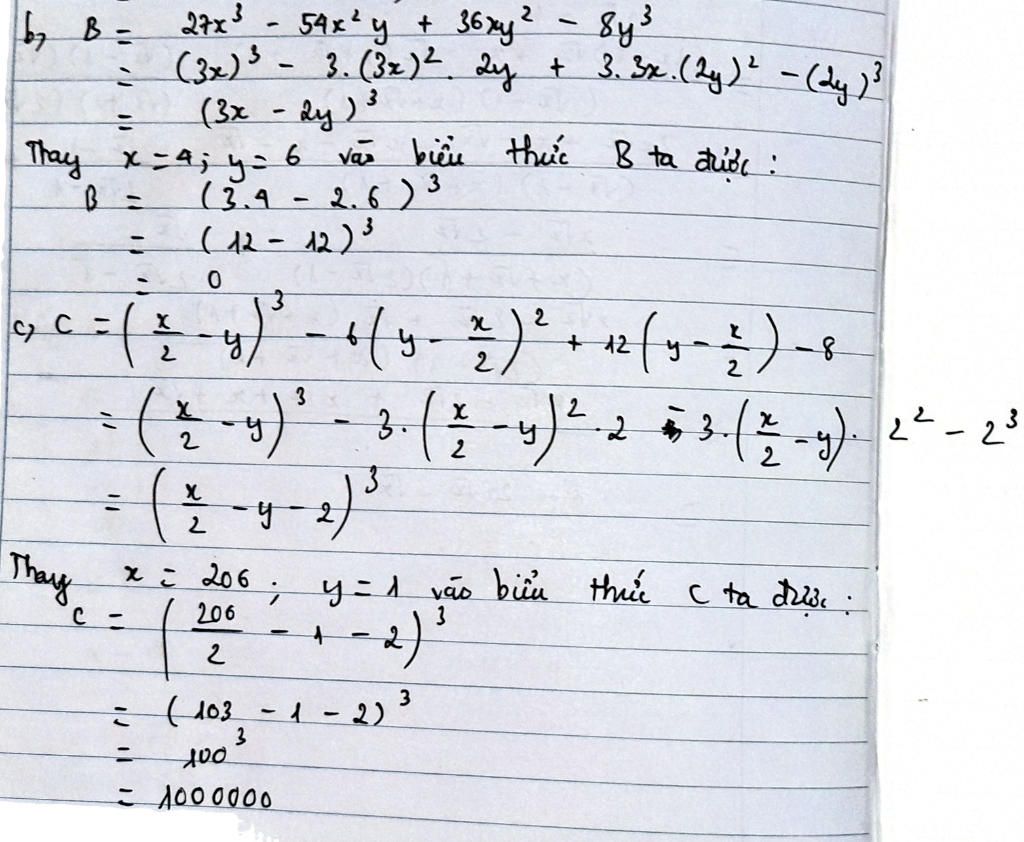 b, B = 27x³ - 54x²y + 36xy² - 8y³
= (3x)³ - 3.(3x)². 2y + 3.3x.(2y)² - (2y)³
= (3x - 2y)³
Thay x = 4; y = 6 vào biểu thức B ta được:
B = (3.4 - 2.6)³
= (12 - 12)³
= 0
c, C = (x/2 - y)³ - 6(y - x/2)² + 12(y - x/2) - 8
= (x/2 - y)³ - 3.(x/2 - y)².2 - 3.(x/2 - y). 2² - 2³
= (x/2 - y - 2)³
Thay x = 206; y = 1 vào biểu thức C ta được:
C = (206/2 - 1 - 2)³
= (103 - 1 - 2)³
= 100³
= 1000000